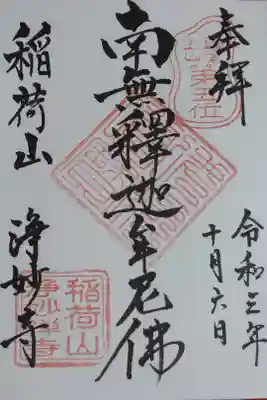 奉拝
令和三年
十月六日
南無釋迦牟尼佛
稲荷山
浄妙寺
稲荷山
浄妙禅寺